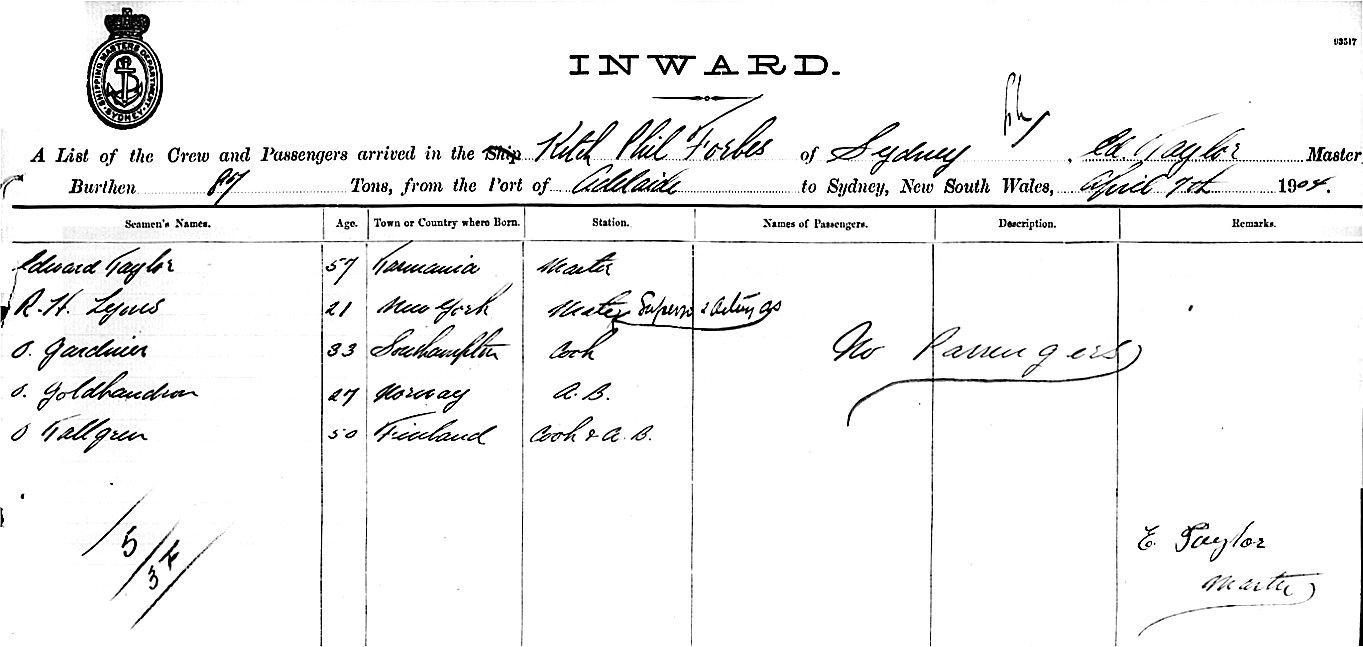 SHIPPING MASTERS DEPARTMENT SYDNEY
93517
INWARD.
A List of the Crew and Passengers arrived in the Ship Ketch Phil Forbes of Sydney Ed. Taylor Master
Burthen Tons, from the Port of Adelaide to Sydney, New South Wales, April 7th 1904.
Seamen's Names. Age. Town or Country where Born. Station. Names of Passengers. Description. Remarks.
Edward Taylor 57 Tasmania Master
R. H. Lyons 21 New York Mate & acting as
O. Gardiner 33 Southampton Cook
No Passengers
O. Goldbandson 27 Norway A.B.
O Tallgren 50 Finland Cook & A.B.
5
3 F
E. Taylor
Master